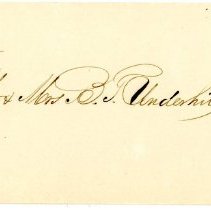 & Mrs B. T. Underhi